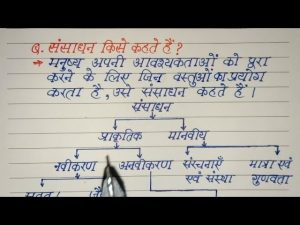 Q. संसाधन किसे कहते हैं ?
→ मनुष्य अपनी आवश्यकताओं को पूरा
करने के लिए जिन वस्तुओं का प्रयोग
करता है, उसे संसाधन कहते हैं ।
संसाधन
प्राकृतिक मानवीय
नवीकरण अनवीकरण संरचनाएँ मात्रा एवं
एवं संस्था गुणवता